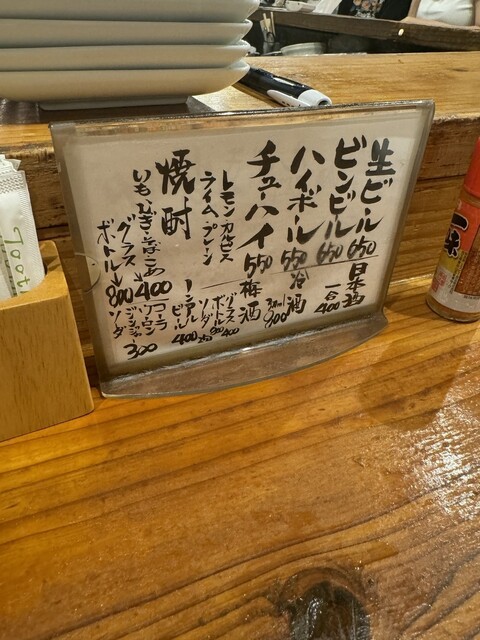 生ビール 650
ビンビール 650
ハイボール 550
チューハイ 550
レモン カルピス
ライム、プレーン
焼酎
いも むぎ そば こめ
グラス → 400
ボトル → 800
日本酒
一合 400
冷酒
900
梅酒
グラス 400
ボトル 800
ソーダ
ノンアル
ビール 400
コーラ
ウーロン
ジンジャー
ソーダ 300
一味
Toot